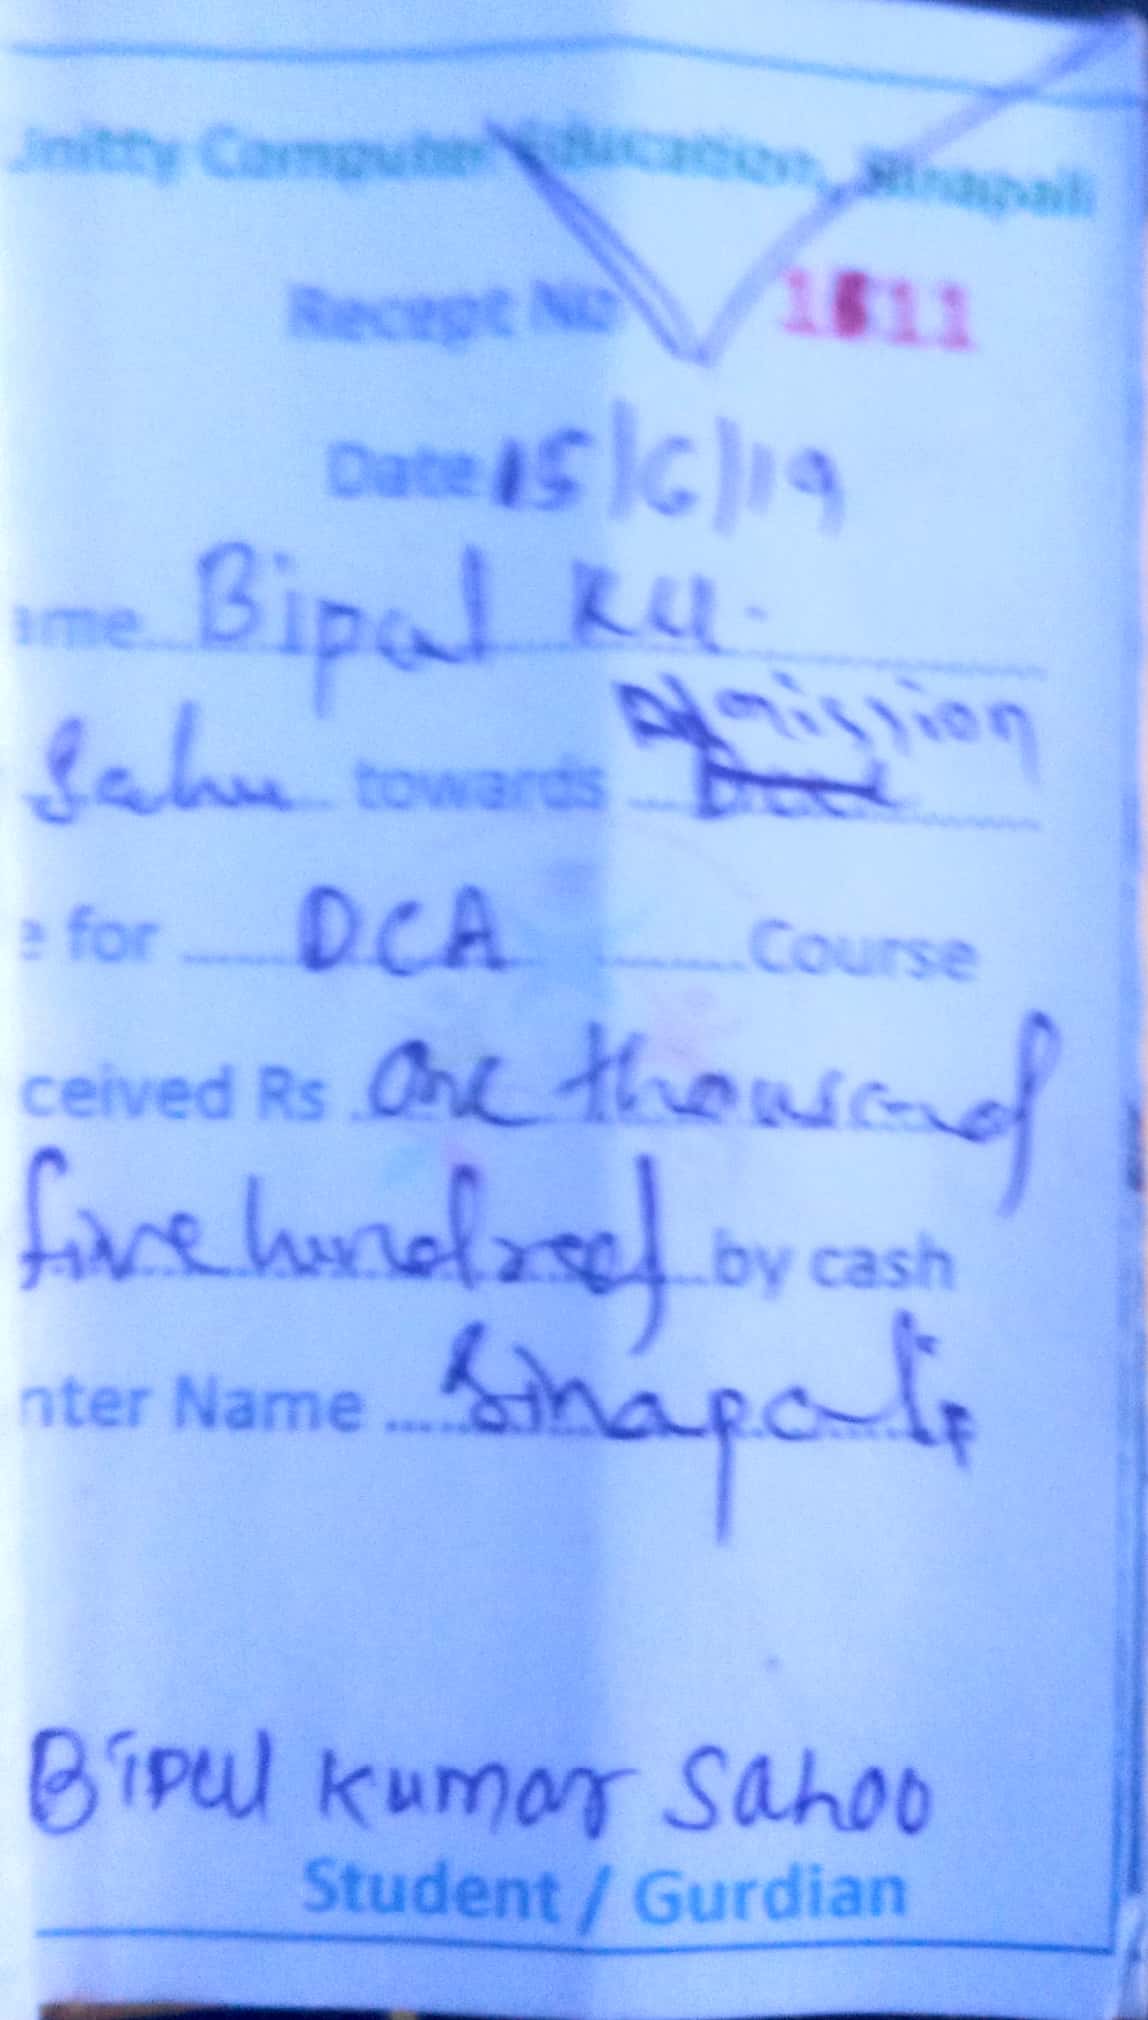 Unitty Computer Education, Sinapali
Recept No
Date 15/6/19
ame Bipul Ku.
Sahu towards Admission
e for DCA Course
ceived Rs One thousand
five hundred by cash
nter Name Sinapali
Bipul Kumar Sahoo
Student / Gurdian